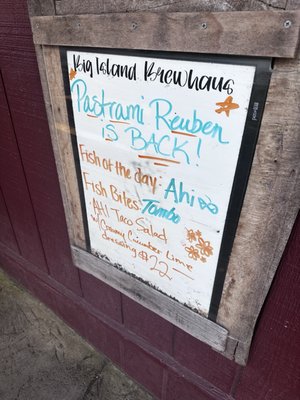 Big Island Brewhaus
Pastrami Reuben
is BACK!
Fish of the day: Ahi
Fish Bites: Tombo
Ahi Taco Salad
w/ Creamy Cucumber Lime
dressing $22